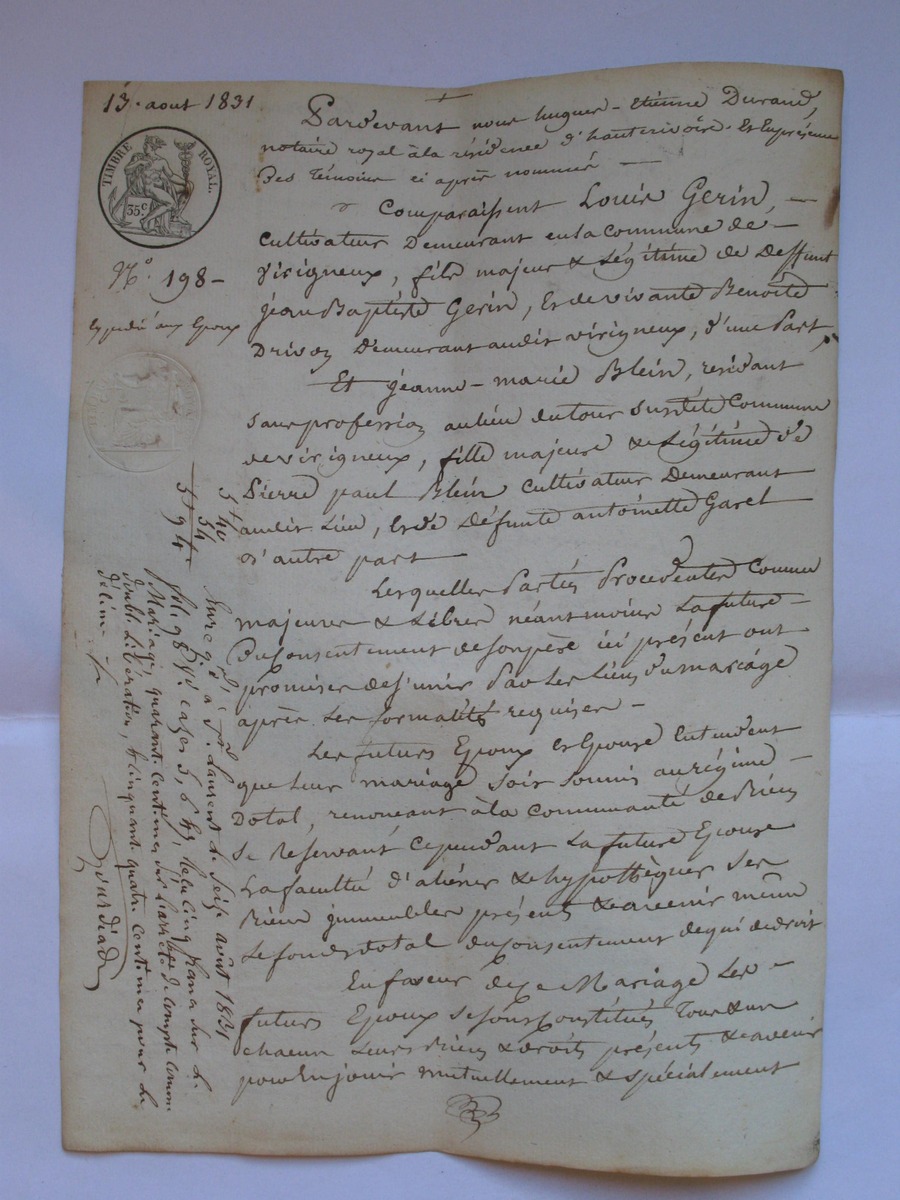 13. aout 1831
TIMBRE ROYAL.
35c
N°. 198 -
Expedié aux Epoux
Pardevant nous hugues - Etienne Durand,
notaire royal à la résidence d'hauterivoire. Et En présence
Des Témoins ci après nommés —
Comparaissent Louis Gerin, —
Cultivateur Demeurant en la commune de -
virigneux, fils majeur & Légitime de Deffunt
jean Baptiste Gerin, Et de vivante Benoite
Drivon Demeurant audit virigneux, d'une Part,
Et jeanne - marie Blein, residant
Sans profession au lieu du tour Susdite Commune
de virigneux, fille majeure & Légitime de
Pierre paul Blein Cultivateur Demeurant
audit Lieu, Et de Défunte antoinette Garel
d'autre part —
Lesquelles Parties Procédentes Comme
majeures & Libres néantmoins La future -
Du Consentement de son père ici présent ont
promises de s'unir Par Les Liens du mariage
après Les formalités requises -
Les futurs Epoux et Epouse Entendent
que Leur mariage Soit Soumis au régime -
Dotal, renoncant à la communauté de Biens
Se Reservant Cependant La future Epouse
La faculté d'aliéner & hypothèquer Ses
Biens jmmeubles présents & avenir même
Le fonds dotal du Consentement de qui de droit
En faveur de ce Mariage Les -
futurs Epoux Se sont Constitués Tous & un
chacun Leurs Biens & droits présents & avenir
pour En jouir mutuellement & spécialement
5 40
54
5 94
Enregistré à St. Laurent le Seize août 1831
fol. 98 vo. cases 5, 6 &, Reçu Cinq francs sur le
Mariage, quarante centimes sur
double Libération, & Cinquante quatre Centimes pour le
décime